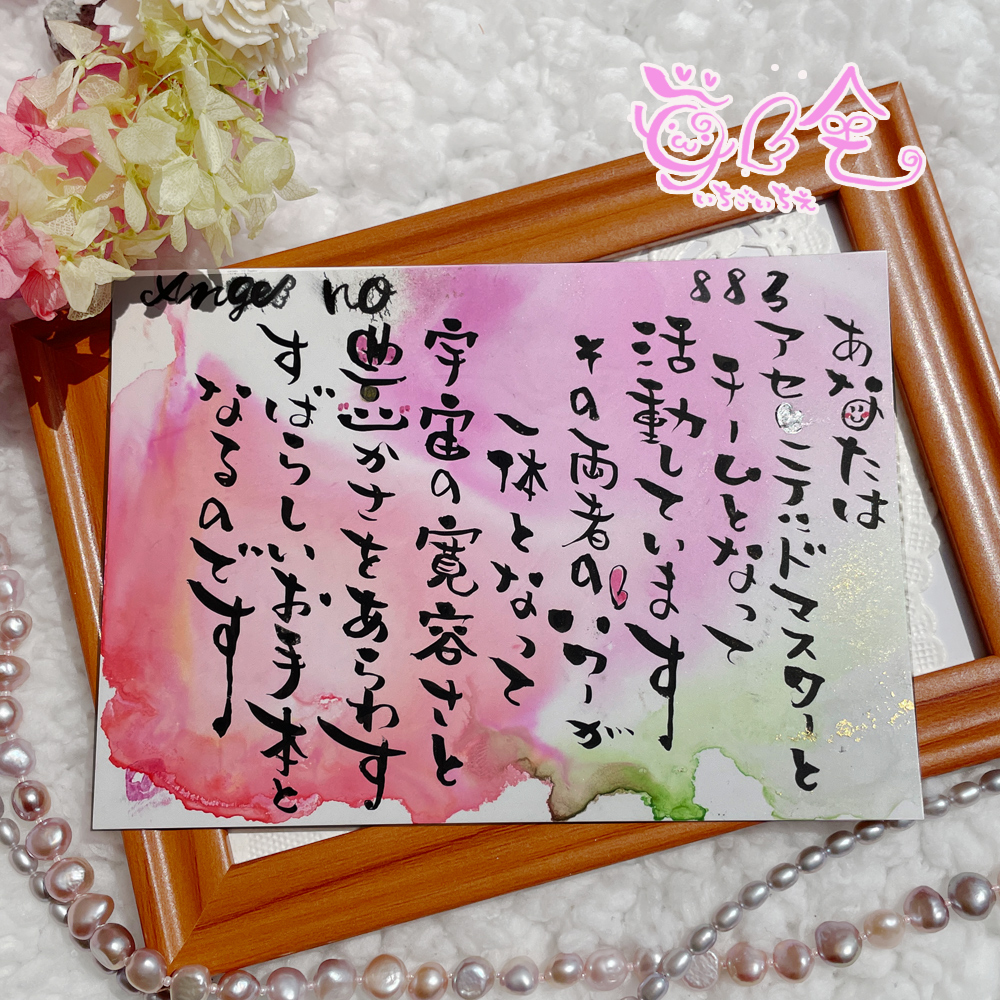 いちごいちえ
Angel no 883
あなたは
アセンデッドマスターと
チームとなって
活動しています
その両者のパワーが
一体となって
宇宙の寛容さと
豊かさをあらわす
すばらしいお手本と
なるのです